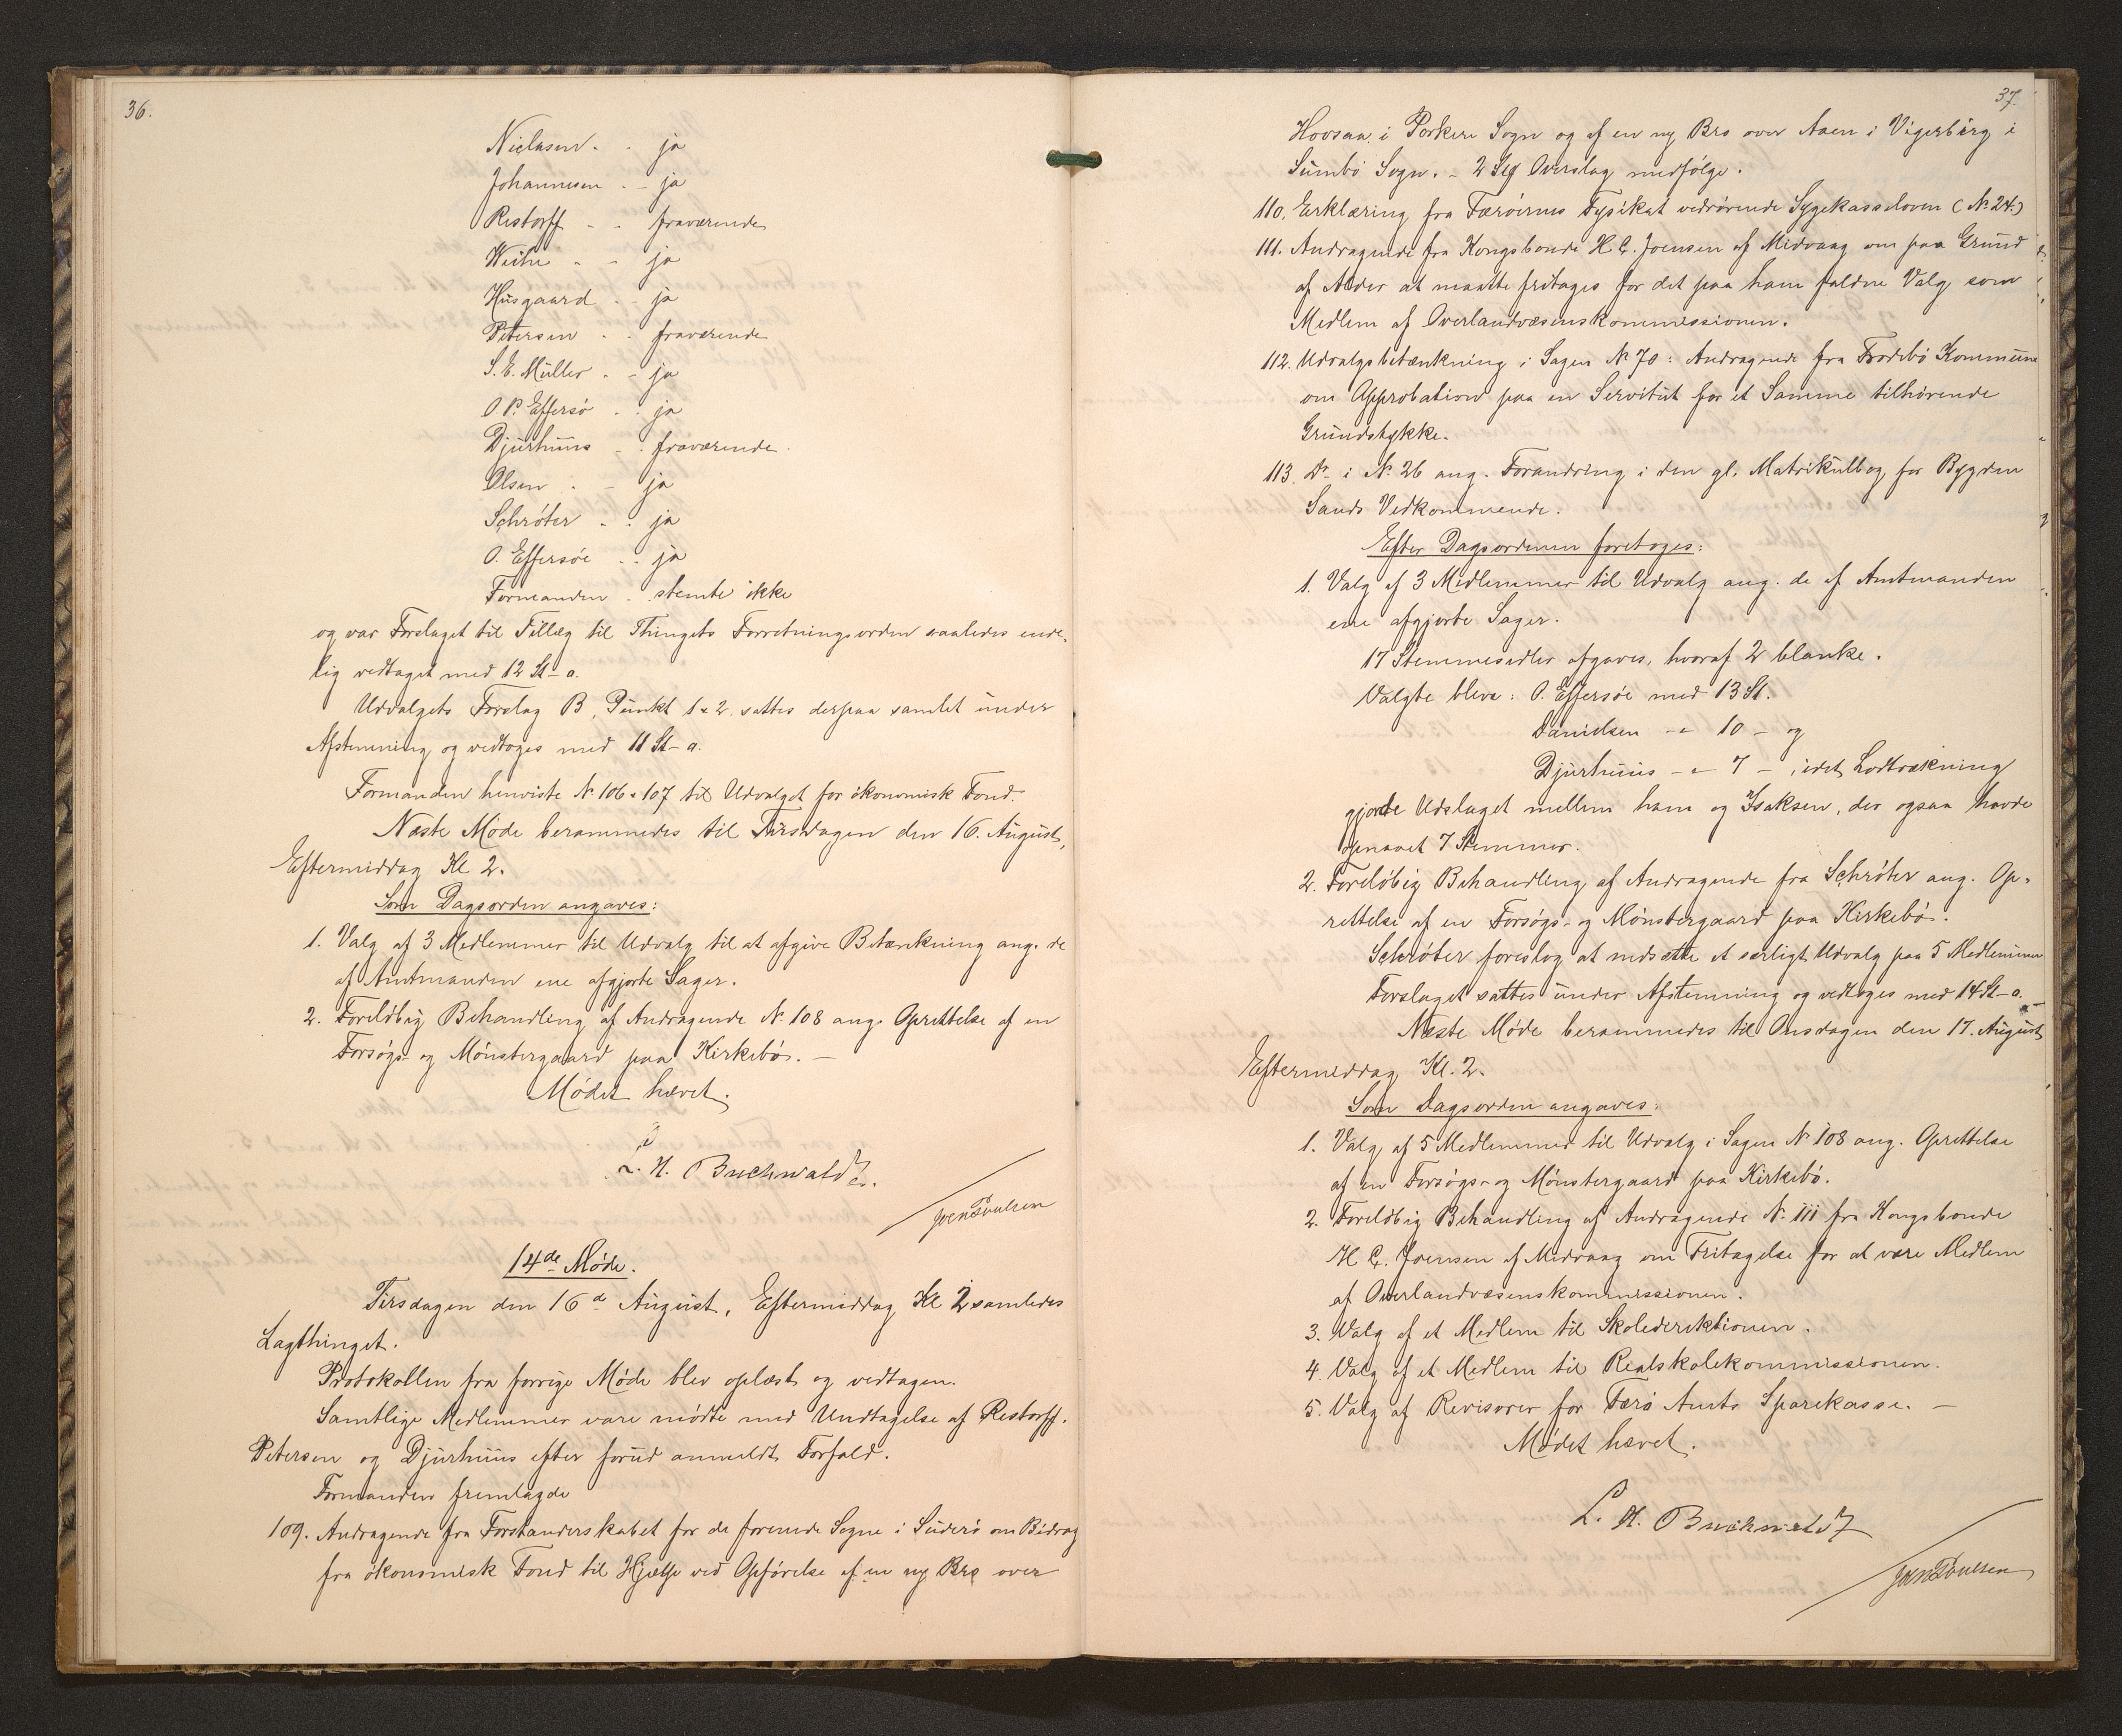 36.
Nielasen - - ja
Johannesen - - ja
Restorff - - fraværende
Weihe - - ja
Husgaard - - ja
Petersen - - fraværende
S. E. Müller - - ja
O. P. Effersø - - ja
Djurhuus - - fraværende.
Olsen - - ja
Schrøter - - ja
O. Effersøe - - ja
Formanden - - stemte ikke
og var Forslaget til Tillæg til Thingets Forretningsorden saaledes ende-
lig vedtaget med 12 St - o.
Udvalgets Forslag B, Punkt 1 & 2, sattes derpaa samlet under
Afstemning og vedtoges med 11 St - o.
Formanden henviste № 106 & 107 til Udvalget for økonomisk Fond.
Næste Møde berammedes til Tirsdagen den 16. August,
Eftermiddag Kl 2.
Som Dagsorden angaves:
1. Valg af 3 Medlemmer til Udvalg til at afgive Betænkning ang. de
af Amtmanden ene afgjorte Sager.
2. Foreløbig Behandling af Andragende № 108 ang. Oprettelse af en
Forsøgs- og Mønstergaard paa Kirkebø. -
Mødet hævet.
L. H. Buchwaldt.
Joen Poulsen
14de Møde.
Tirsdagen den 16de August, Eftermiddag Kl 2 samledes
Lagthinget.
Protokollen fra forrige Møde blev oplæst og vedtagen.
Samtlige Medlemmer vare mødte med Undtagelse af Restorff,
Petersen og Djurhuus efter forud anmeldt Forfald.
Formanden fremlagde
109. Andragende fra Forstanderskabet for de forenede Sogne i Suderø om Bidrag
fra økonomisk Fond til Hjælp ved Opførelse af en ny Bro over
37.
Hovsaa i Porkere Sogn og af en ny Bro over Aaen i Vigerbirg i
Sumbø Sogn. - 2 Overslag medfølge.
110. Erklæring fra Færøernes Fysikat vedrørende Sygekasseloven (№ 24.)
111. Andragende fra Kongsbonde H. C. Joensen af Midvaag om paa Grund
af Alder at maatte fritages for det paa ham faldne Valg som
Medlem af Overlandvæsenskommissionen.
112. Udvalgsbetænkning i Sagen № 70: Andragende fra Frodebø Kommune
om Approbation paa en Servitut for et Samme tilhørende
Grundstykke.
113. Do i № 26 ang. Forandring i den gl. Matrikulbog for Bygden
Sands Vedkommende.
Efter Dagsordenen foretoges:
1. Valg af 3 Medlemmer til Udvalg ang. de af Amtmanden
ene afgjorte Sager.
17 Stemmesedler afgaves, hvoraf 2 blanke.
Valgte bleve: O. Effersøe med 13 St.
Danielsen - " - 10 - og
Djurhuus - " - 7 - , idet Lodtrækning
gjorde Udslaget mellem ham og Isaksen, der ogsaa havde
opnaaet 7 Stemmer.
2. Foreløbig Behandling af Andragende fra Schrøter ang. Op-
rettelse af en Forsøgs- og Mønstergaard paa Kirkebø.
Schrøter foreslog at nedsætte et særligt Udvalg paa 5 Medlemmer
Forslaget sattes under Afstemning og vedtoges med 14 St - o.
Næste Møde berammedes til Onsdagen den 17. August
Eftermiddag Kl. 2.
Som Dagsorden angaves:
1. Valg af 5 Medlemmer til Udvalg i Sagen № 108 ang. Oprettelse
af en Forsøgs- og Mønstergaard paa Kirkebø.
2. Foreløbig Behandling af Andragende № 111 fra Kongsbonde
H. C. Joensen af Midvaag om Fritagelse for at være Medlem
af Overlandvæsenskommissionen.
3. Valg af et Medlem til Skoledirektionen.
4. Valg af et Medlem til Realskolekommissionen.
5. Valg af Revisorer for Færø Amts Sparekasse. -
Mødet hævet.
L. H. Buchwaldt
Joen Poulsen